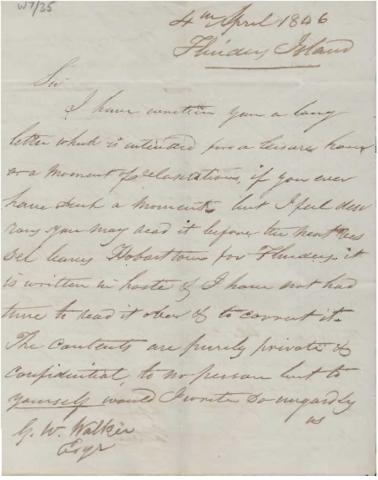 W7/35
4th April 1846
Flinders Island
Sir
I have written you a long
letter which is intended for a leisure hour
or a moment of relaxation, if you ever
have such a moment but I feel desi
rous you may read it before the next Ves
sel leaves Hobarttown for Flinders, it
is written in haste & I have not had
time to read it over & to correct it.
The contents are purely private &
confidential, to no person but to
yourself would I write so unguardly
as
G. W. Walker
Esqr